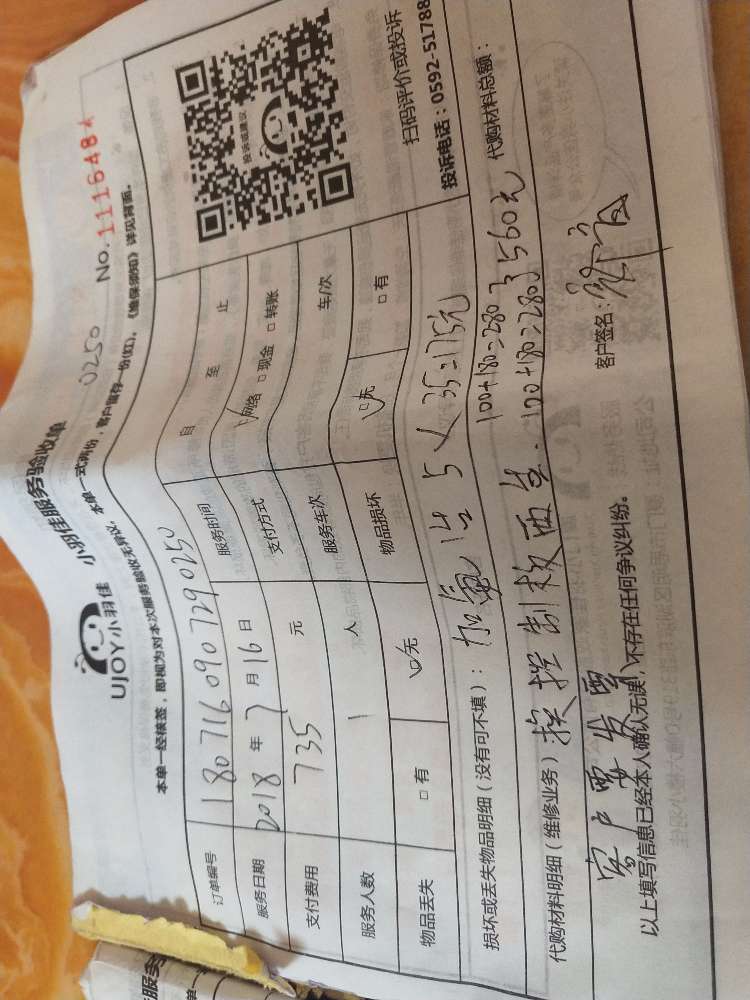 UJOY小羽佳 小羽佳服务验收单
0250 No.111648
本单一经核签，即视为对本次服务验收无异议，本单一式两份，客户留存一份(红)。《维保须知》详见背面。
订单编号 1807160907290250
服务日期 2018年7月16日 服务时间 自 至 止
支付费用 735 元 支付方式 网络 □现金 □转账
服务人数 1 人 服务车次 车/次
物品丢失 □有 □无 物品损坏 □无 □有
投诉或建议
扫码评价或投诉
投诉电话：0592-51788
损坏或丢失物品明细（没有可不填）：加氟 5×35=175元
100+180=280
代购材料明细（维修业务）换控制板两块. 100+180=280 560元 代购材料总额：
客户要发票
以上填写信息已经本人确认无误，不存在任何争议纠纷。 客户签名：